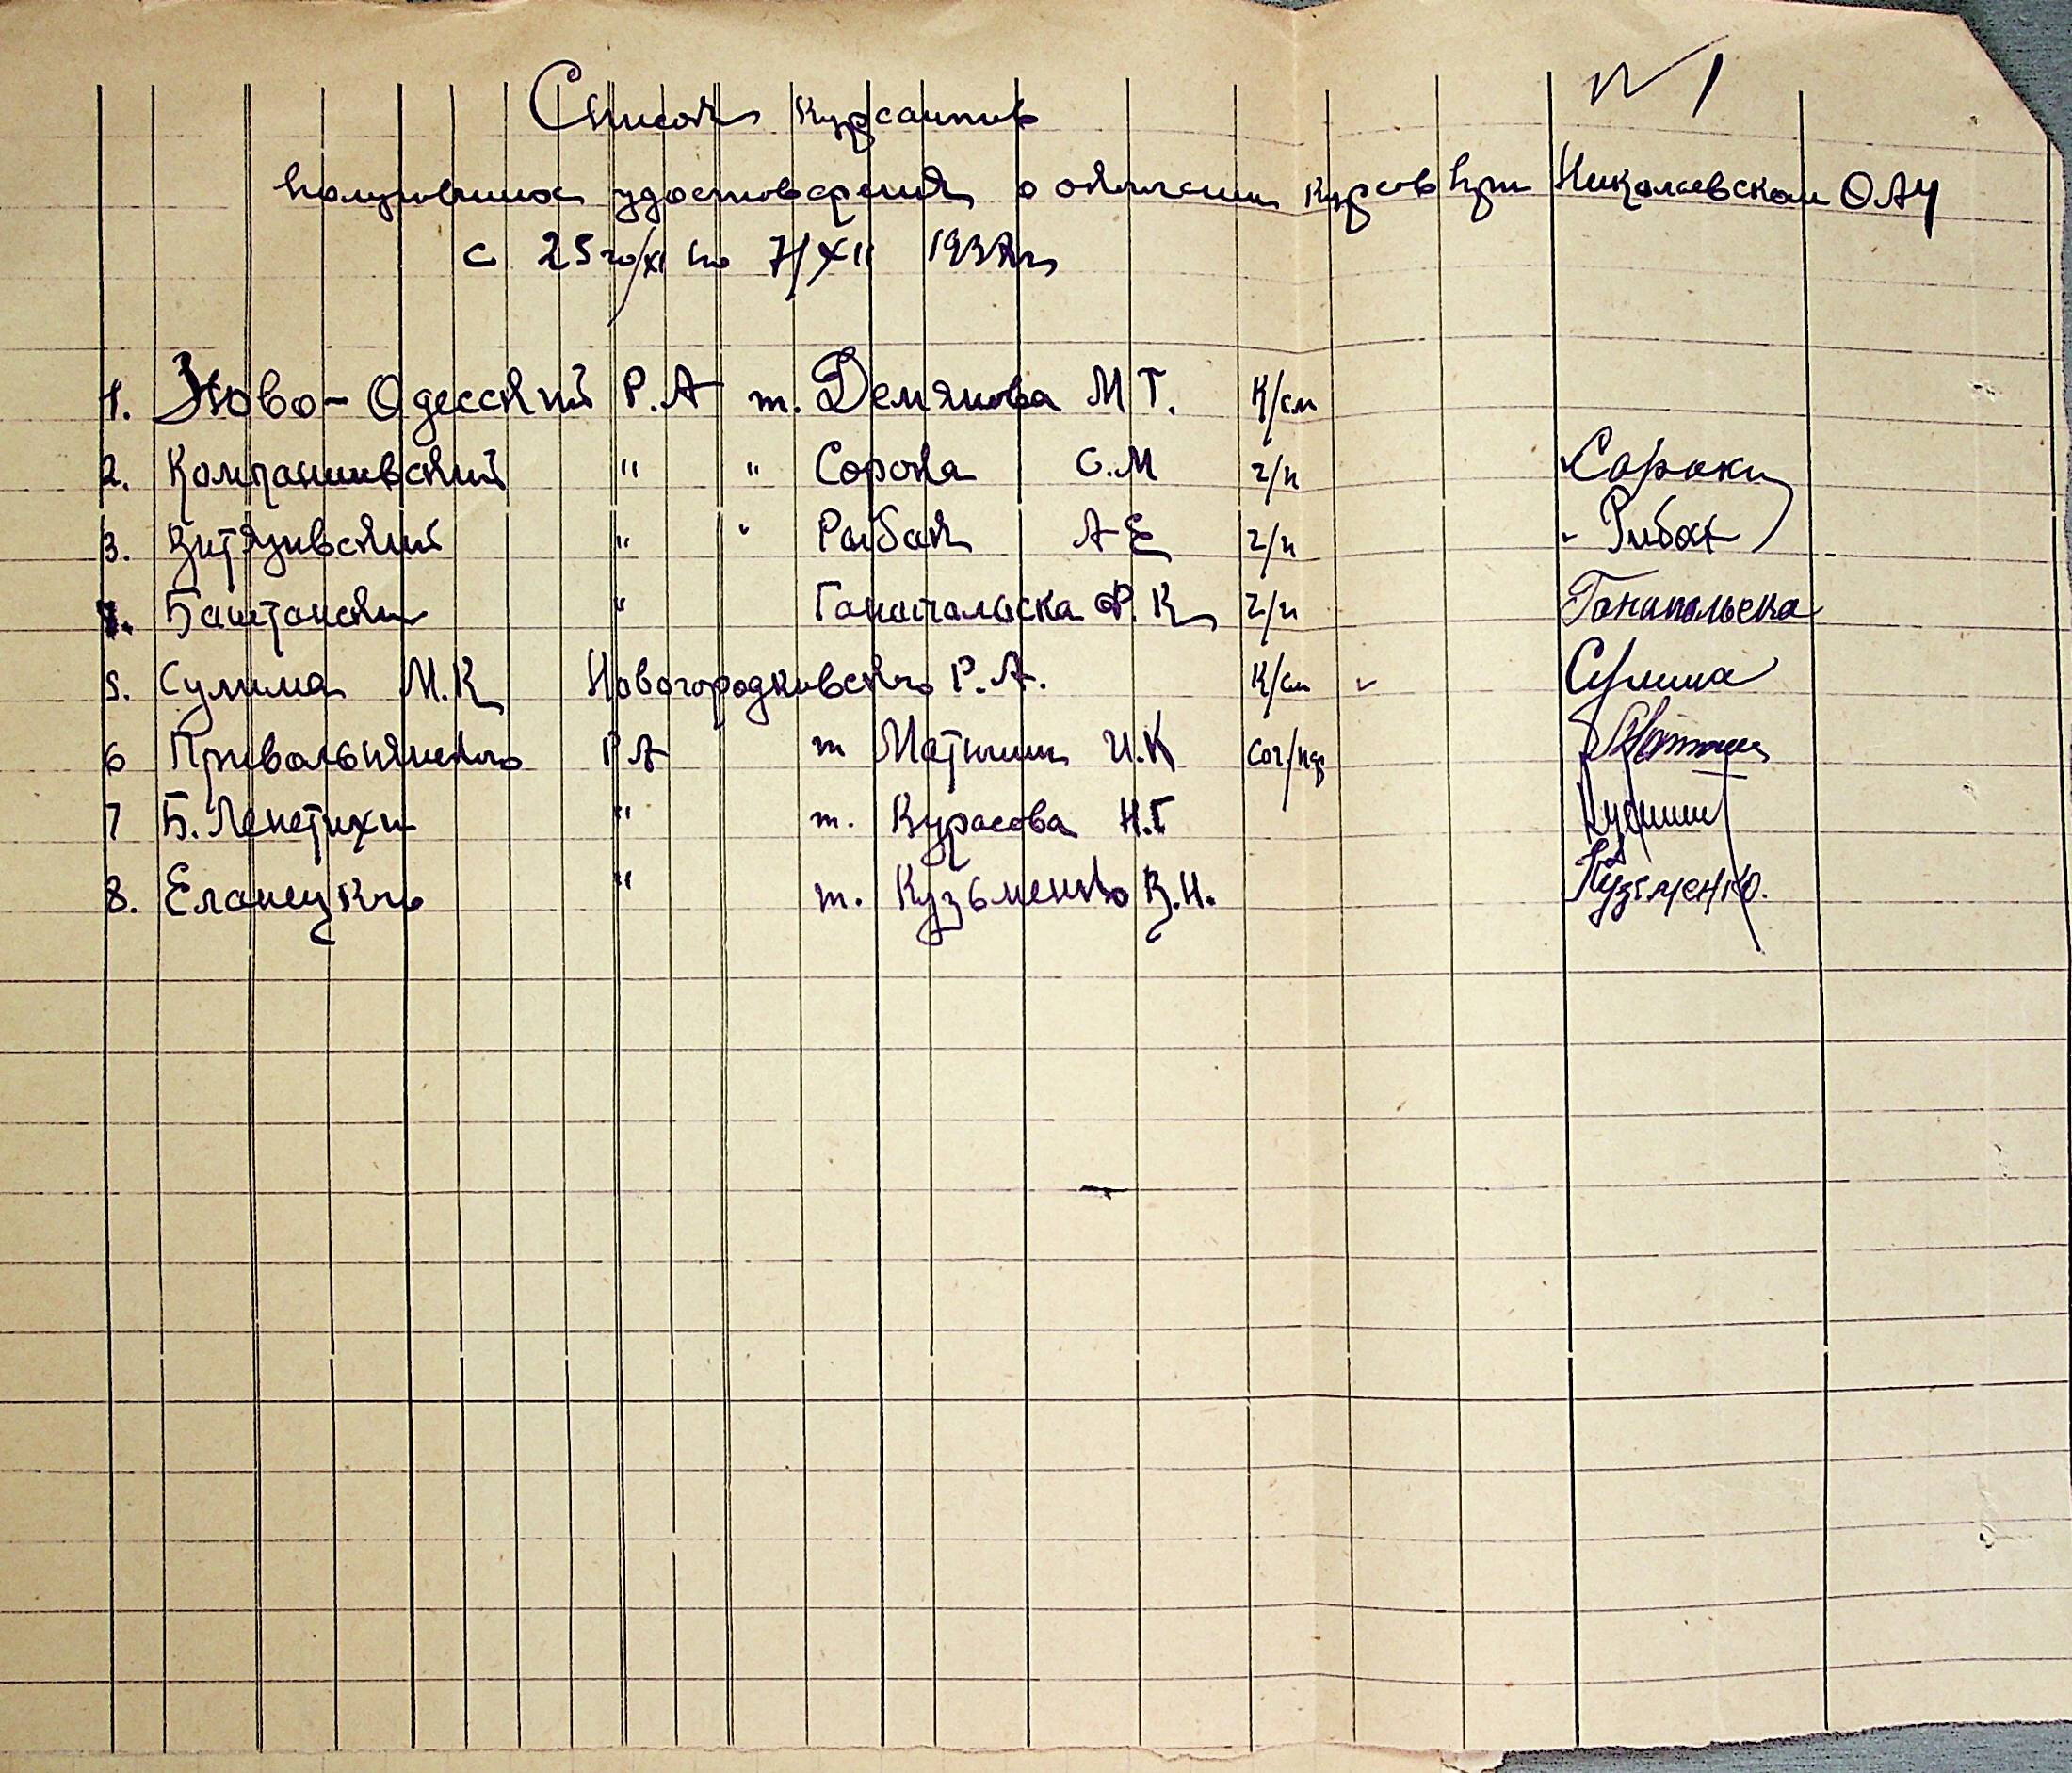 № 1
Список курсантив
получивших удостоверения о окончании курсов при Николаевском ОАУ
с 25го/XI по 7/XII 1937г
1. Ново-Одесский Р.А т. Демянова М Т. К/см
2. Компаниивский " " Сорока С.М 2/и Сорока
3. Витязивский " " Рыбак А Е 2/и Рибак
4. Баштански " Ганапальска Ф.К 2/и Ганапольска
5. Сулима М.К Новогородкивского Р.А. К/см Сулима
6 Привольнянского РА т Матюшин И.К
7 Б. Лепетихи " т. Курасова Н.Г
8. Еланецкго " т. Кузьменко В.Н. Кузьменко.